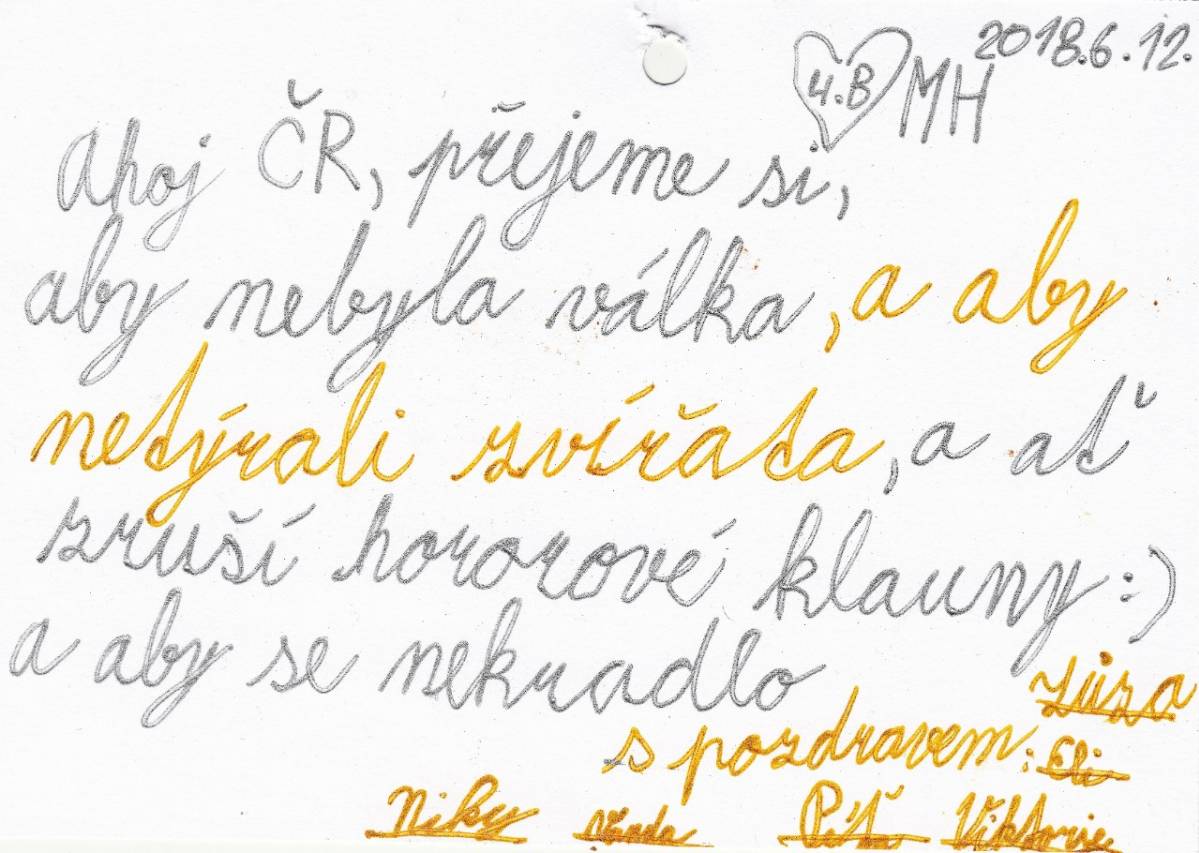 2018.6.12.
4.B MH
Ahoj ČR, přejeme si,
aby nebyla válka, a aby
netýrali zvířata, a ať
zruší hororové klauny :)
a aby se nekradlo
Zůza
s pozdravem: Eli
Niky Péťa Viktorie